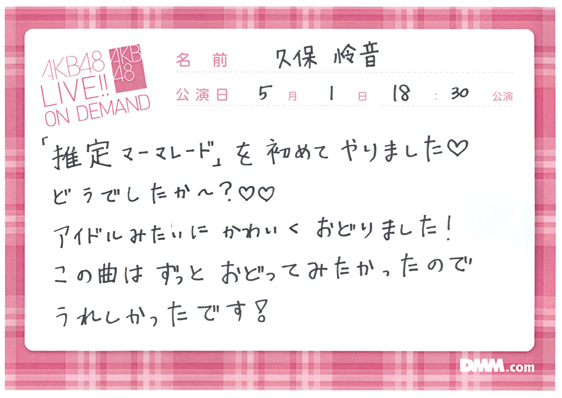 AKB48
LIVE!!
ON DEMAND
AKB
48
名前 久保 怜音
公演日 5月1日 18:30 公演
「推定マーマレード」を初めてやりました♡
どうでしたか〜?♡♡
アイドルみたいにかわいくおどりました!
この曲はずっとおどってみたかったので
うれしかったです!
DMM.com